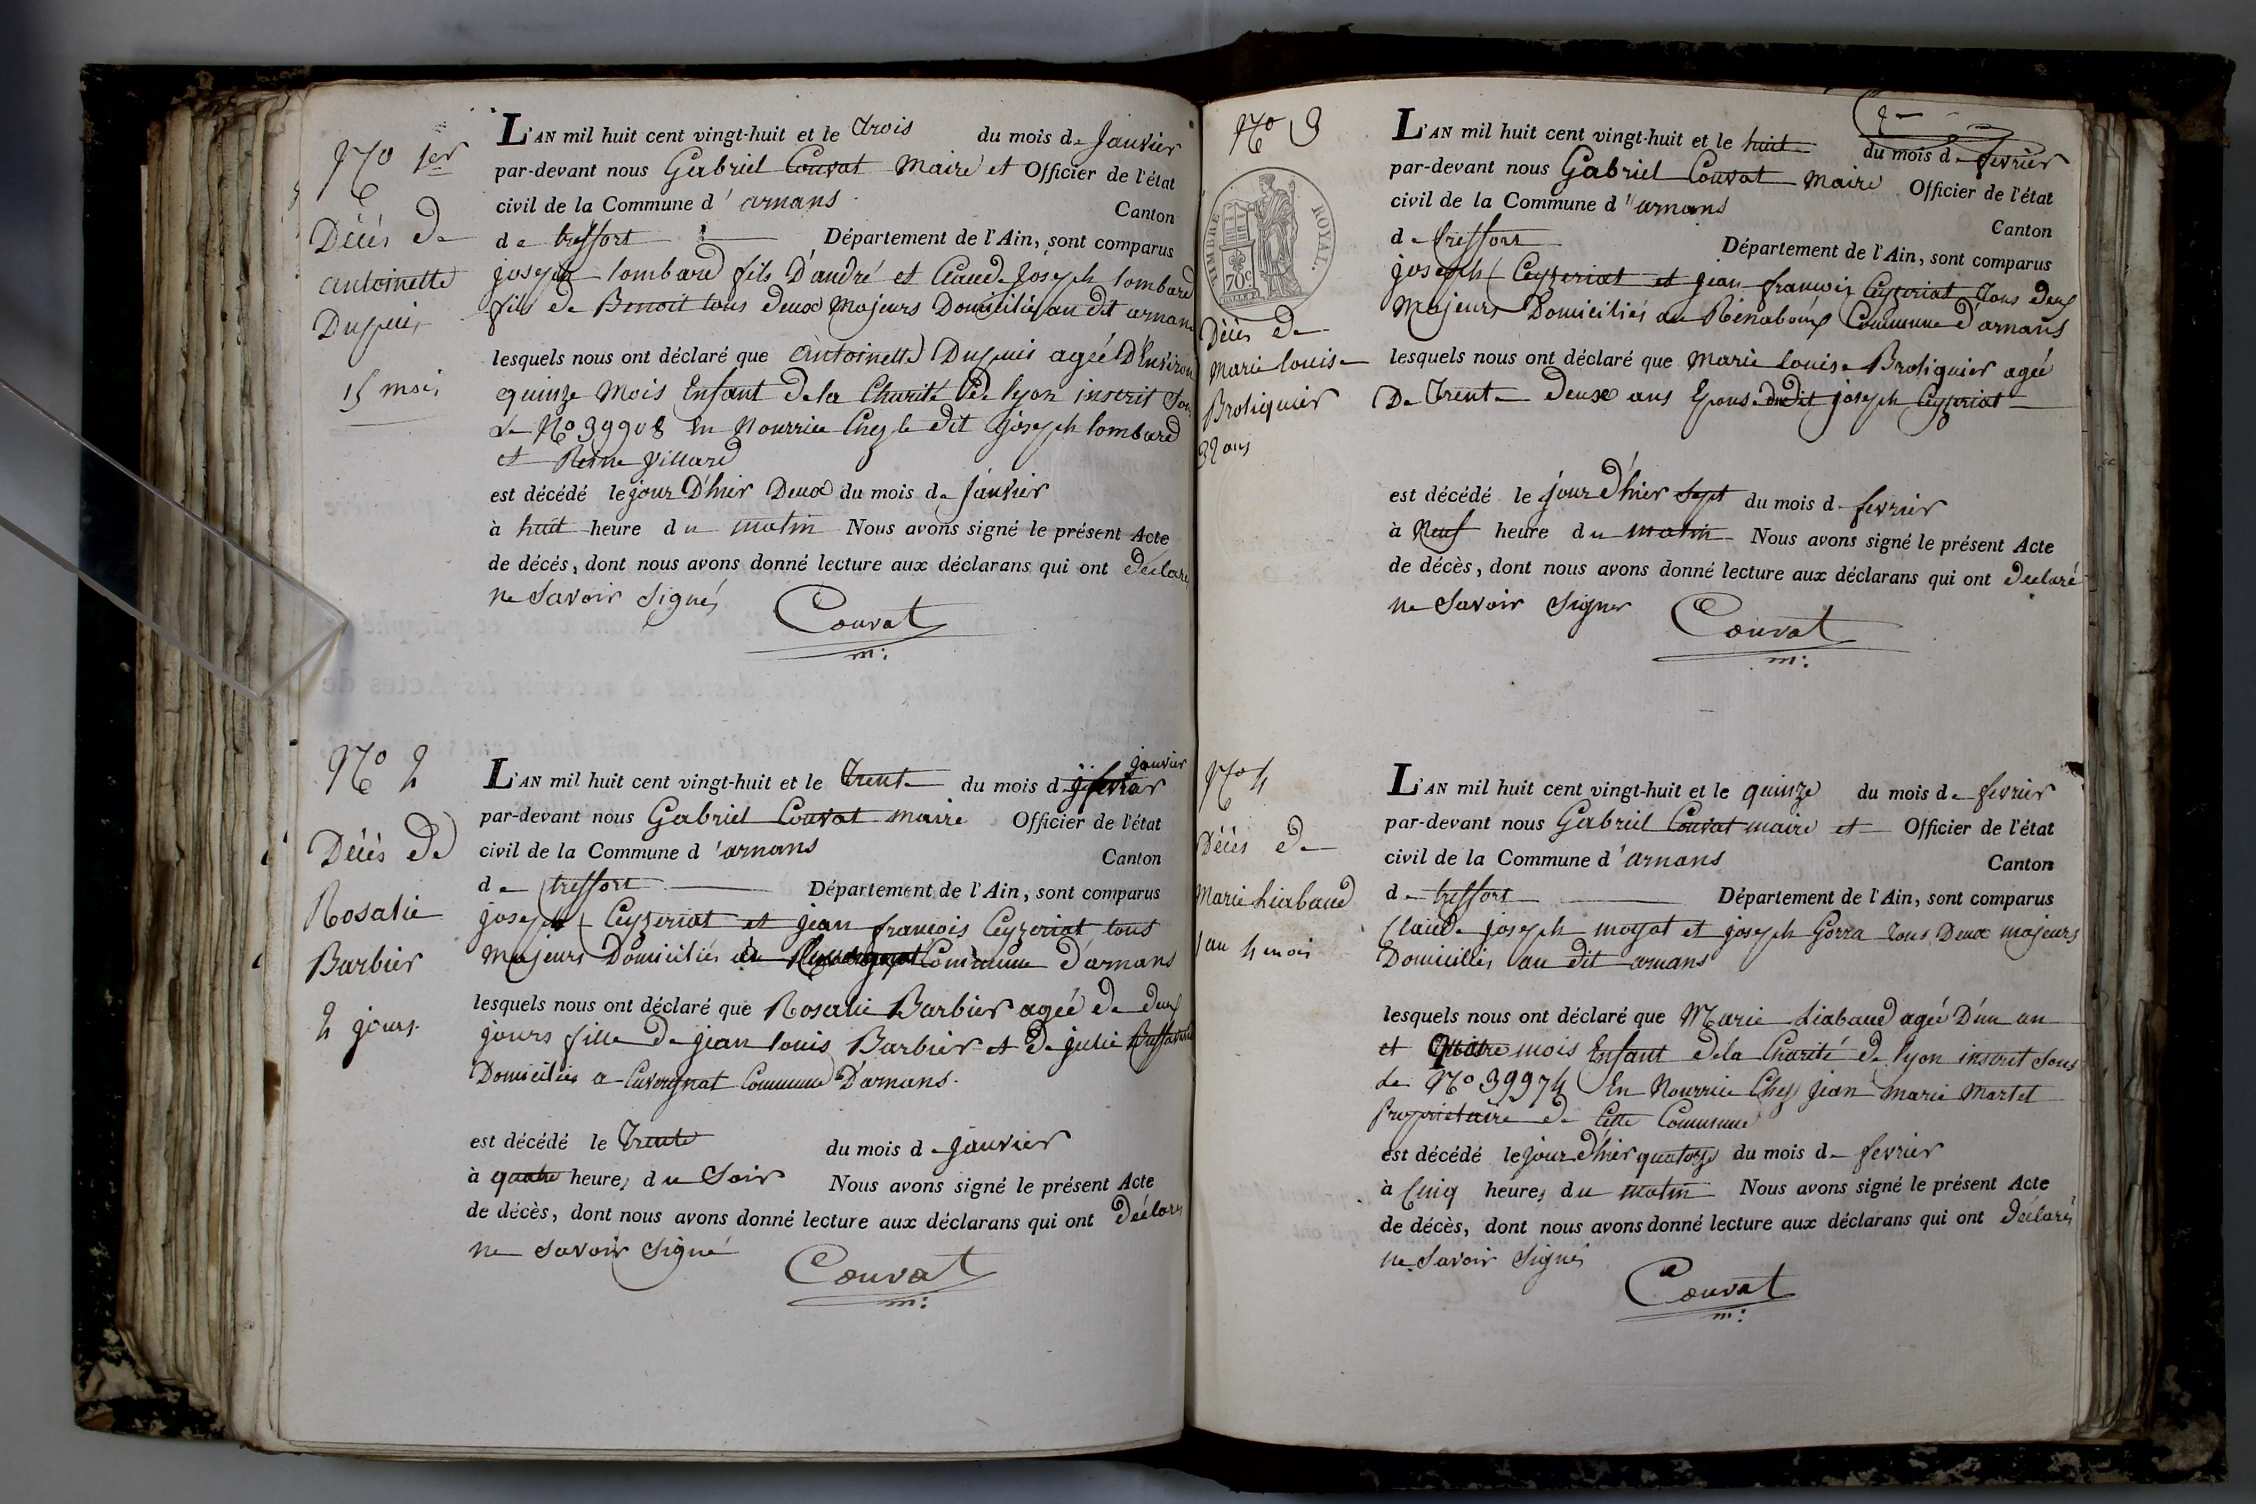 No 1er
Décès de
antoinette
Dupuis
15 mois
L'AN mil huit cent vingt-huit et le trois du mois de Janvier
par-devant nous Gabriel Couvat Maire et Officier de l'état
civil de la Commune d'arnans Canton
de treffort Département de l'Ain, sont comparus
joseph lombard fils D'andré et Claude Joseph lombard
fils de Benoit tous deux Majeurs Domiciliés au dit arnans
lesquels nous ont déclaré que antoinette Dupuis agée D'Environ
quinze Mois Enfant de la Charité de lyon inscrit Sous
Le No 39908 En Nourrice Chez le dit joseph lombard
et Reine Villard
est décédé le jour D'hier Deux du mois de Janvier
à huit heure du matin Nous avons signé le présent Acte
de décés, dont nous avons donné lecture aux déclarans qui ont déclaré
ne Savoir Signés
Couvat
m:
No 2
Décès de
Rosalie
Barbier
2 jours.
L'AN mil huit cent vingt-huit et le Trente du mois d janvier
par-devant nous Gabriel Couvat maire Officier de l'état
civil de la Commune d'arnans Canton
de treffort Département de l'Ain, sont comparus
joseph Ceyzeriat et jean françois Ceyzeriat tous
Majeurs Domiciliés Commune d'arnans
lesquels nous ont déclaré que Rosalie Barbier agée de deux
jours fille de jean louis Barbier et de julie
Domiciliés a Cuvergnat Commune D'arnans.
est décédé le Trente du mois de Janvier
à quatre heures du Soir Nous avons signé le présent Acte
de décès, dont nous avons donné lecture aux déclarans qui ont déclaré
ne Savoir Signé
Couvat
m:
No 3
TIMBRE ROYAL.
70c
Décès de
Marie louise
Brotiquier
32 ans
L'AN mil huit cent vingt-huit et le huit du mois de fevrier
par-devant nous Gabriel Couvat Maire Officier de l'état
civil de la Commune d'arnans Canton
de treffort Département de l'Ain, sont comparus
joseph Ceyzeriat et jean françois Ceyzeriat Tous deux
Majeurs Domiciliés au Commune d'arnans
lesquels nous ont déclaré que Marie louise Brotiquier agée
De Trente deux ans Epouse dudit joseph Ceyzeriat
est décédé le jour d'hier Sept du mois de fevrier
à Neuf heure du matin Nous avons signé le présent Acte
de décès, dont nous avons donné lecture aux déclarans qui ont declaré
ne Savoir Signer
Couvat
m:
No 4
Décès de
Marie Liabaud
1 an 4 mois
L'AN mil huit cent vingt-huit et le quinze du mois de fevrier
par-devant nous Gabriel Couvat maire et Officier de l'état
civil de la Commune d'arnans Canton
de treffort Département de l'Ain, sont comparus
Claude joseph moyat et joseph Gorra Tous Deux majeurs
Domiciliés au dit arnans
lesquels nous ont déclaré que Marie Liabaud agée D'un an
et Quatre mois Enfant de la Charité de lyon inscrit Sous
Le No 39974 En Nourrice Chez jean Marie Martel
proprietaire de Cette Commune
est décédé le jour d'hier quatorze du mois de fevrier
à Cinq heures du matin Nous avons signé le présent Acte
de décès, dont nous avons donné lecture aux déclarans qui ont déclarés
ne Savoir Signés
Couvat
m: